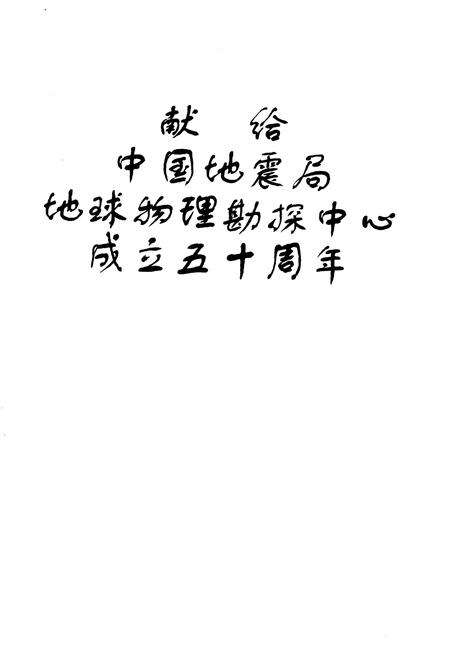 献 给
中国地震局
地球物理勘探中心
成立五十周年